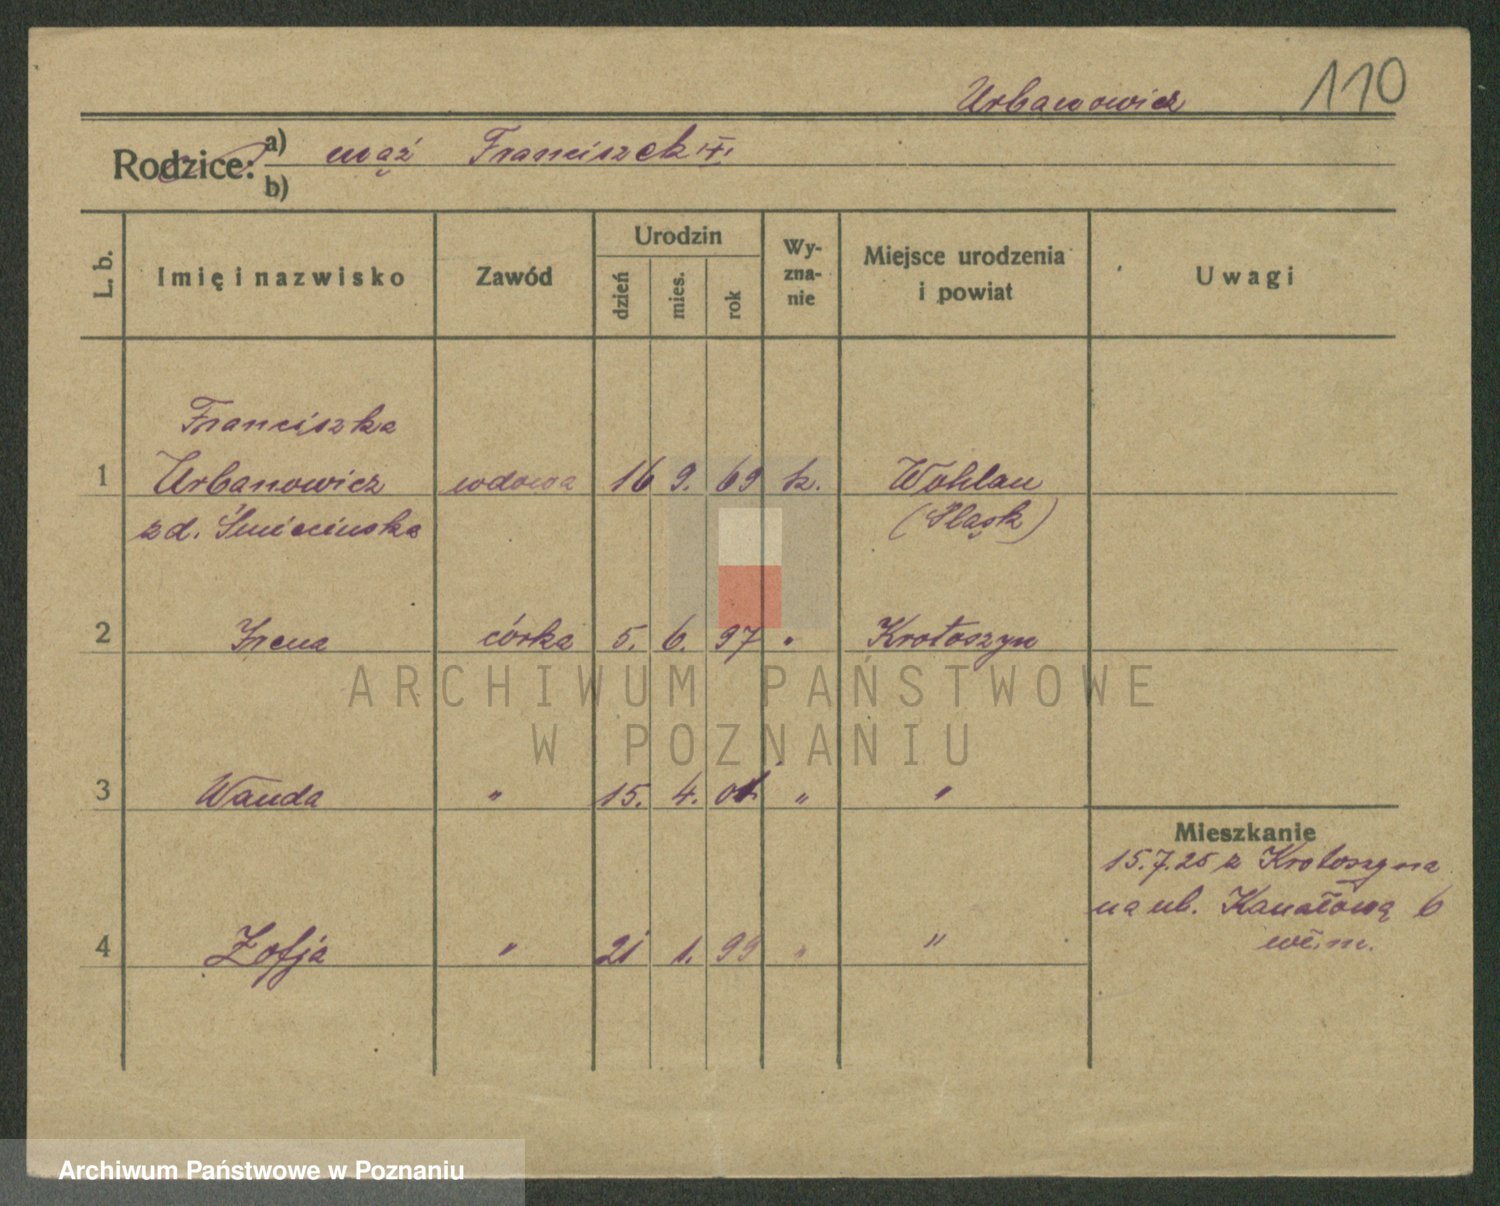 Urbanowicz 110
Rodzice: a) mąż Franciszek
b)
L. b. Imię i nazwisko Zawód Urodzin dzień mies. rok Wy-zna-nie Miejsce urodzenia i powiat Uwagi
Franciszka
1 Urbanowicz wdowa 16 9. 69 k. Wohlau
zd. (Śląsk)
2 Irena córka 5. 6. 97 " Krotoszyn
ARCHIWUM PAŃSTWOWE
W POZNANIU
3 Wanda " 15. 4. 01 " "
Mieszkanie
15.7.25 z Krotoszyna
na ul. Kanałową 6
4 Zofja " 21 1. 99 " "
Archiwum Państwowe w Poznaniu